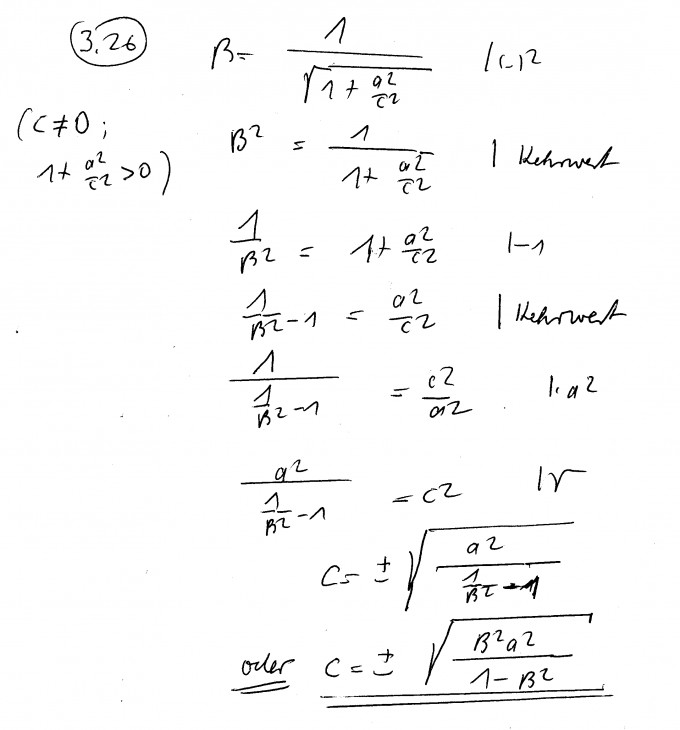 3.26 B = 1/√(1 + a²/c²) |(-)²
(C ≠ 0; B² = 1/(1 + a²/c²) | Kehrwert
1 + a²/c² > 0)
1/B² = 1 + a²/c² |-1
1/B² - 1 = a²/c² | Kehrwert
1/(1/B² - 1) = c²/a² |· a²
a²/(1/B² - 1) = c² |√
C = ± √(a²/(1/B² - 1))
oder C = ± √(B²a²/(1 - B²))